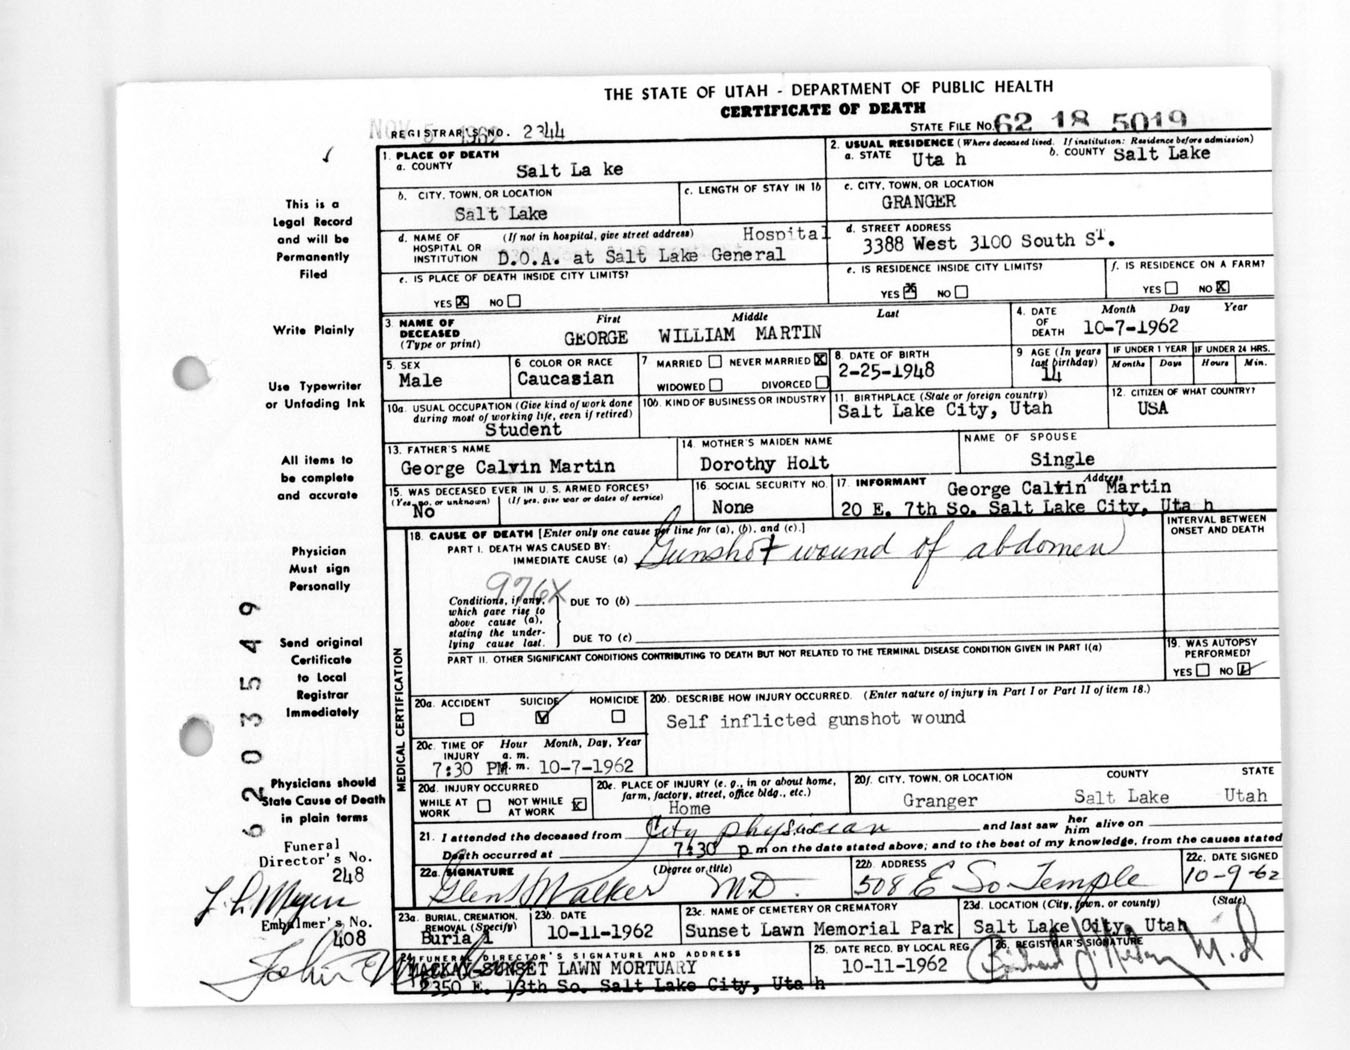 THE STATE OF UTAH - DEPARTMENT OF PUBLIC HEALTH
CERTIFICATE OF DEATH
REGISTRAR'S NO. 2344
STATE FILE NO. 62 18 5019
1. PLACE OF DEATH
a. COUNTY Salt La ke
2. USUAL RESIDENCE (Where deceased lived. If institution: Residence before admission)
a. STATE Uta h b. COUNTY Salt Lake
b. CITY, TOWN, OR LOCATION
Salt Lake
c. LENGTH OF STAY IN 1b
c. CITY, TOWN, OR LOCATION
GRANGER
d. NAME OF HOSPITAL OR INSTITUTION (If not in hospital, give street address) Hospital
D.O.A. at Salt Lake General
d. STREET ADDRESS
3388 West 3100 South ST.
e. IS PLACE OF DEATH INSIDE CITY LIMITS?
YES X NO
e. IS RESIDENCE INSIDE CITY LIMITS?
YES X NO
f. IS RESIDENCE ON A FARM?
YES NO X
3. NAME OF DECEASED (Type or print)
First Middle Last
GEORGE WILLIAM MARTIN
4. DATE OF DEATH Month Day Year
10-7-1962
5. SEX
Male
6 COLOR OR RACE
Caucasian
7 MARRIED NEVER MARRIED X
WIDOWED DIVORCED
8. DATE OF BIRTH
2-25-1948
9 AGE (In years last birthday)
14
IF UNDER 1 YEAR
Months Days
IF UNDER 24 HRS.
Hours Min.
10a. USUAL OCCUPATION (Give kind of work done during most of working life, even if retired)
Student
10b. KIND OF BUSINESS OR INDUSTRY
11. BIRTHPLACE (State or foreign country)
Salt Lake City, Utah
12. CITIZEN OF WHAT COUNTRY?
USA
13. FATHER'S NAME
George Calvin Martin
14. MOTHER'S MAIDEN NAME
Dorothy Holt
NAME OF SPOUSE
Single
15. WAS DECEASED EVER IN U. S. ARMED FORCES?
(Yes, no, or unknown) (If yes, give war or dates of service)
No
16. SOCIAL SECURITY NO.
None
17. INFORMANT Address
George Calvin Martin
20 E. 7th So. Salt Lake City, Uta h
18. CAUSE OF DEATH [Enter only one cause per line for (a), (b), and (c).]
PART I. DEATH WAS CAUSED BY:
IMMEDIATE CAUSE (a) Gunshot wound of abdomen
INTERVAL BETWEEN ONSET AND DEATH
976X
Conditions, if any, which gave rise to above cause (a), stating the underlying cause last.
DUE TO (b)
DUE TO (c)
PART II. OTHER SIGNIFICANT CONDITIONS CONTRIBUTING TO DEATH BUT NOT RELATED TO THE TERMINAL DISEASE CONDITION GIVEN IN PART I(a)
19. WAS AUTOPSY PERFORMED?
YES NO
MEDICAL CERTIFICATION
20a. ACCIDENT SUICIDE HOMICIDE
20b. DESCRIBE HOW INJURY OCCURRED. (Enter nature of injury in Part I or Part II of item 18.)
Self inflicted gunshot wound
20c. TIME OF INJURY Hour a. m. p. m. Month, Day, Year
7:30 PM 10-7-1962
20d. INJURY OCCURRED
WHILE AT WORK NOT WHILE AT WORK X
20e. PLACE OF INJURY (e. g., in or about home, farm, factory, street, office bldg., etc.)
Home
20f. CITY, TOWN, OR LOCATION COUNTY STATE
Granger Salt Lake Utah
21. I attended the deceased from City physician and last saw her him alive on
Death occurred at 7:30 p m on the date stated above; and to the best of my knowledge, from the causes stated
22a. SIGNATURE (Degree or title)
Glen S Walker M.D.
22b. ADDRESS
508 E So Temple
22c. DATE SIGNED
10-9-62
23a. BURIAL, CREMATION, REMOVAL (Specify)
Buria l
23b. DATE
10-11-1962
23c. NAME OF CEMETERY OR CREMATORY
Sunset Lawn Memorial Park
23d. LOCATION (City, town, or county) (State)
Salt Lake City, Utah
24 FUNERAL DIRECTOR'S SIGNATURE AND ADDRESS
MACKAY-SUNSET LAWN MORTUARY
2350 E. 13th So. Salt Lake City, Uta h
25. DATE RECD. BY LOCAL REG.
10-11-1962
26. REGISTRAR'S SIGNATURE
M.d
This is a
Legal Record
and will be
Permanently
Filed
Write Plainly
Use Typewriter
or Unfading Ink
All items to
be complete
and accurate
Physician
Must sign
Personally
Send original
Certificate
to Local
Registrar
Immediately
Physicians should
State Cause of Death
in plain terms
Funeral
Director's No.
248
Embalmer's No.
408
6203549